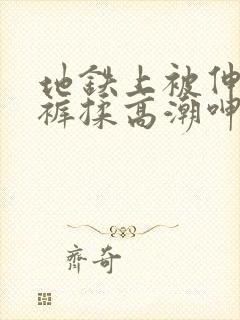 地铁上被伸
裤揉高潮呻
齐奇